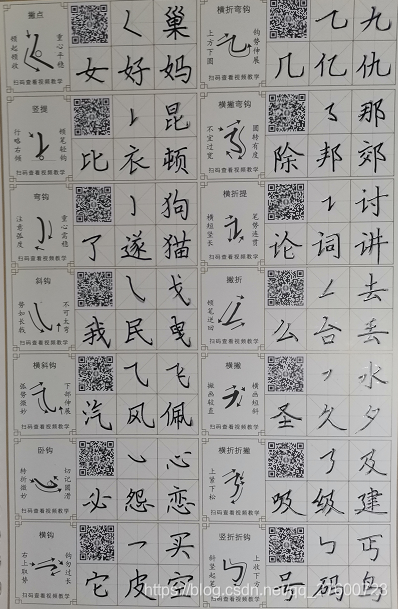 撇点
重心平稳
巢
女 好 妈
扫码查看视频教学
横折弯钩
钩势伸展
上方下圆
九
几 亿 仇
扫码查看视频教学
竖提
顿笔轻钩
行略右倾
昆
比 衣 顿
扫码查看视频教学
横撇弯钩
圆转有度
不宜过宽
那
除 邦 郊
扫码查看视频教学
弯钩
重心需稳
注意弧度
狗
了 遂 猫
扫码查看视频教学
横折提
笔势连贯
横短竖长
讨
论 词 讲
扫码查看视频教学
斜钩
不可太弯
劲如长戟
戈
我 民 曳
扫码查看视频教学
撇折
顿笔逆回
去
么 台 丢
扫码查看视频教学
横斜钩
下部伸展
弧势微妙
飞
汽 风 佩
扫码查看视频教学
横撇
横画短斜
撇画较直
水
圣 久 夕
扫码查看视频教学
卧钩
切记圆滑
转折微妙
心
必 怨 恋
扫码查看视频教学
横折折撇
上紧下松
及
吸 级 建
扫码查看视频教学
横钩
钩勿过长
右上取势
买
它 皮 空
扫码查看视频教学
竖折折钩
上收下方
丐
号 码 鸟
扫码查看视频教学